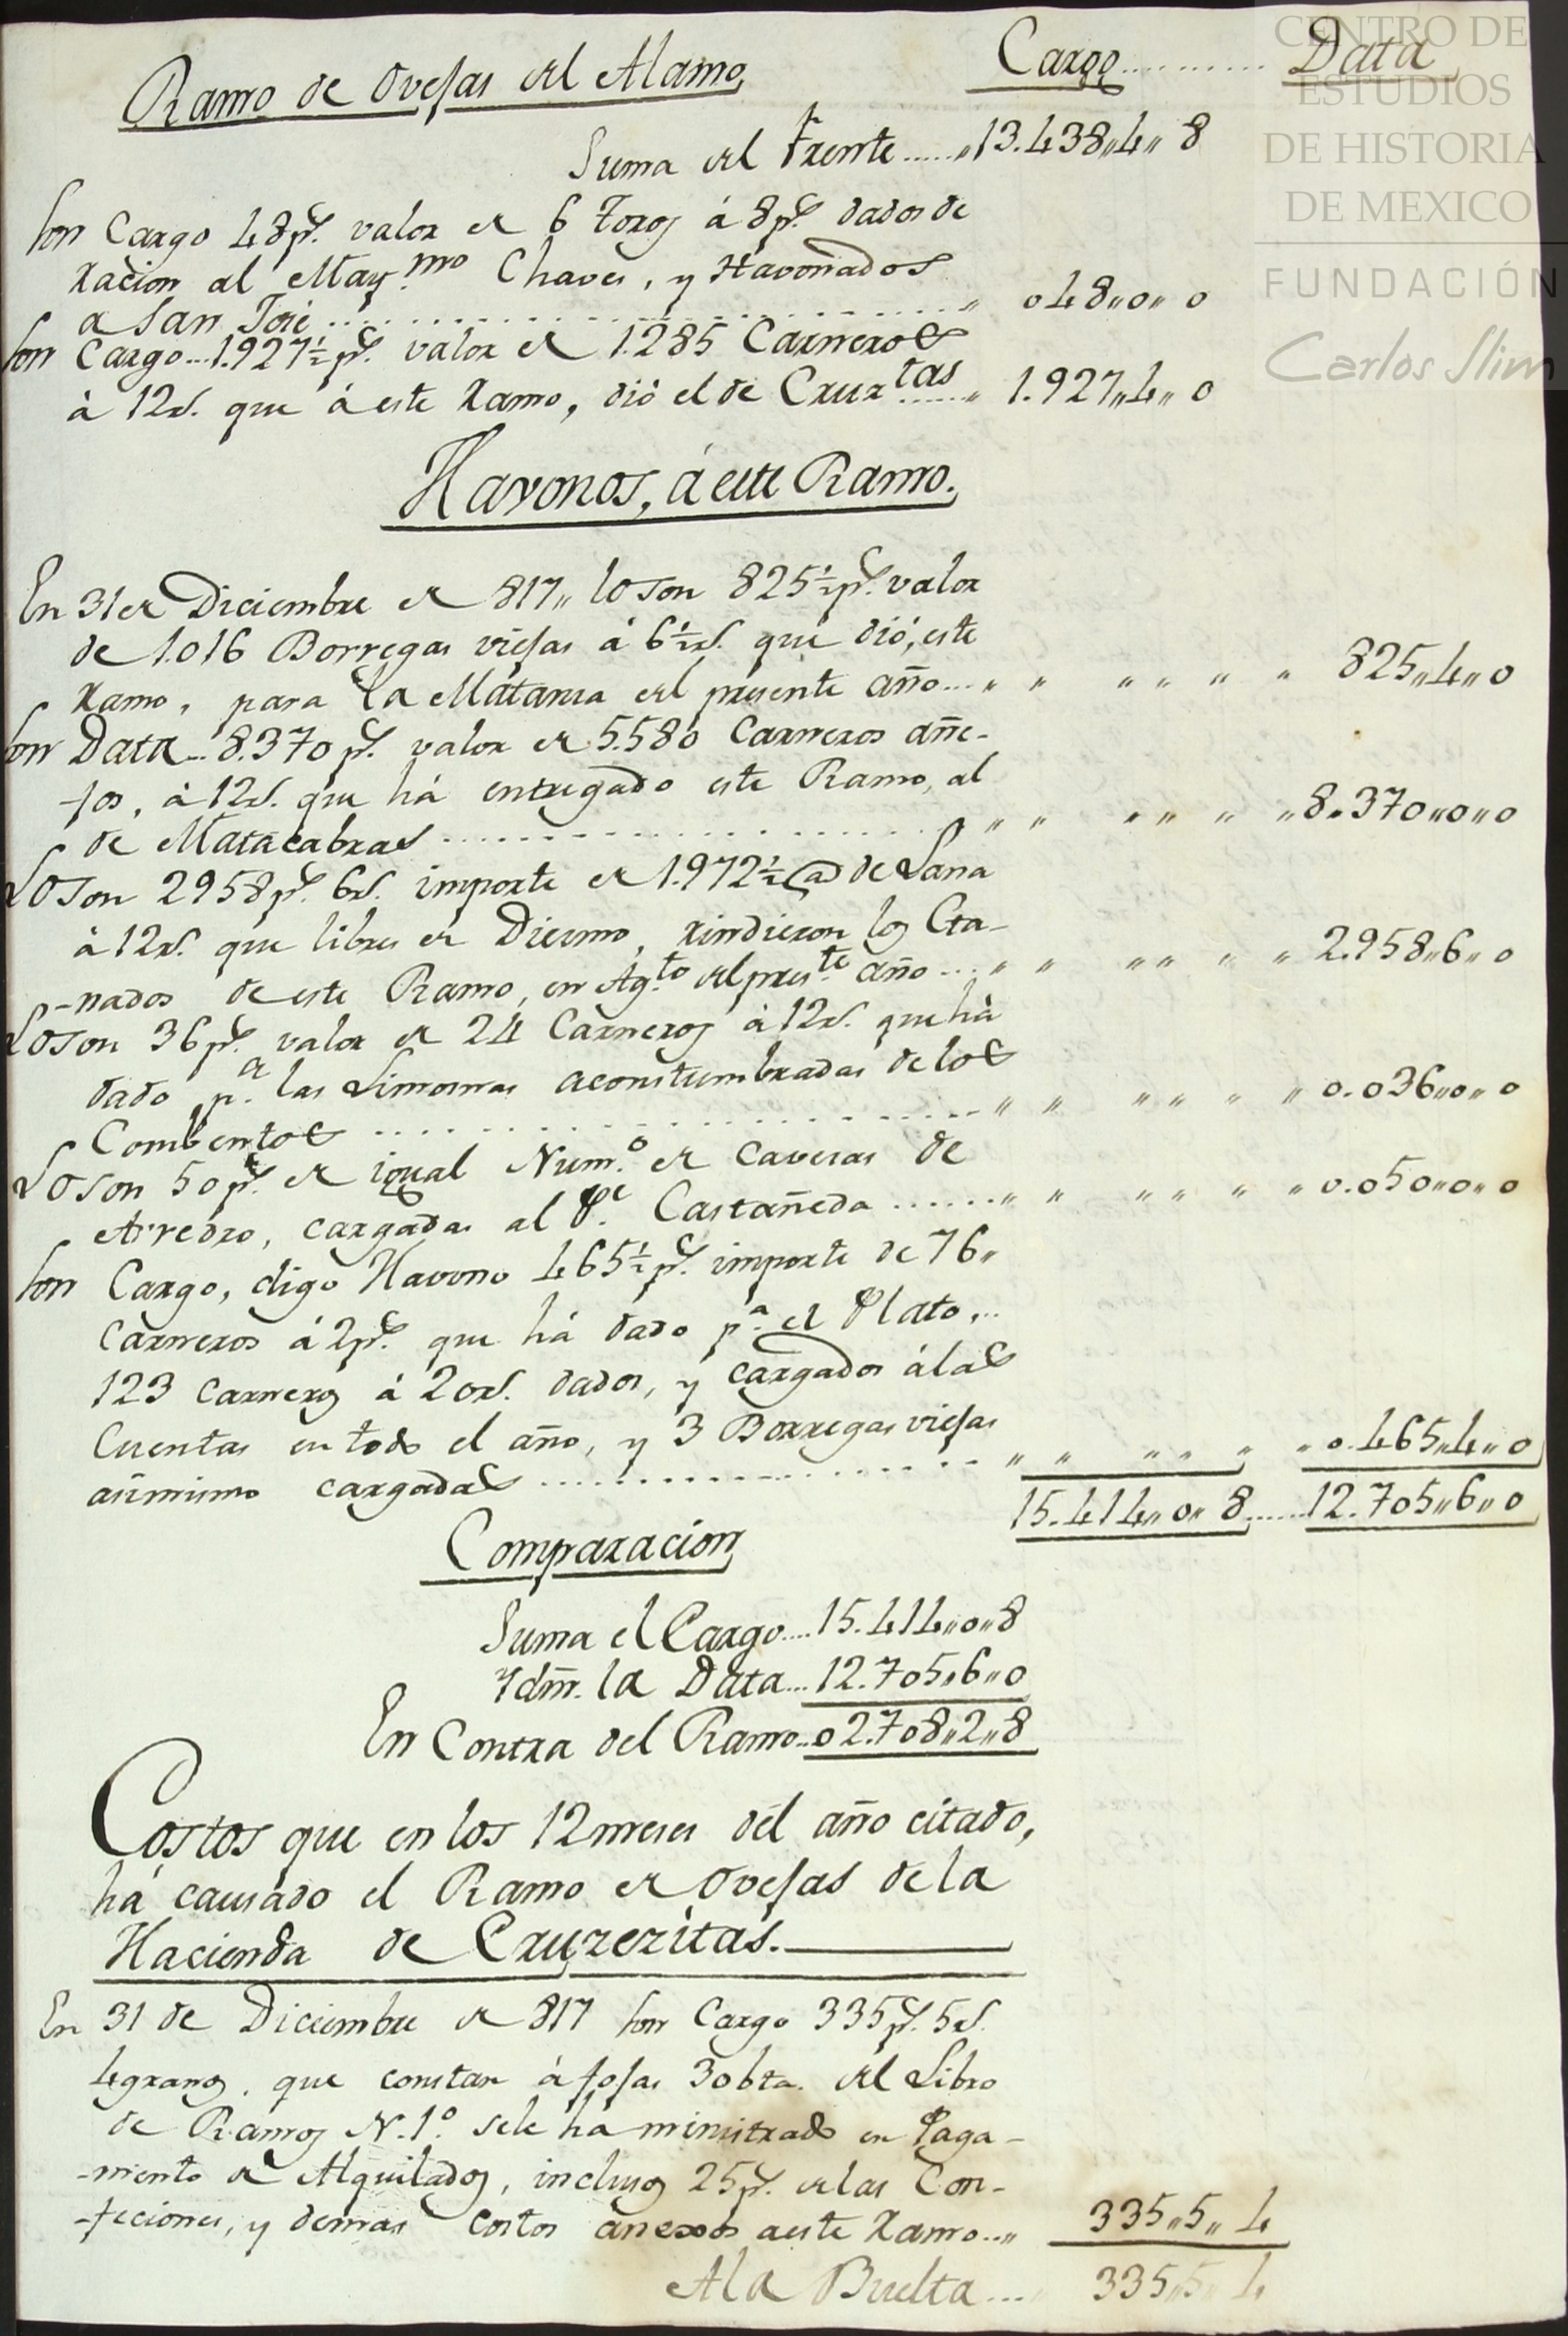 CENTRO DE
ESTUDIOS
DE HISTORIA
DE MEXICO
FUNDACIÓN
Carlos Slim
Ramo de Ovejas del Alamo, Cargo .......... Data
Suma del Frente ..... „13.438„4„ 8
Son Cargo 48 p.s valor de 6 Toros á 8 p.s dados de
racion al May.mo Chaves, y Havonados
a San José .......... „ 048„0„ 0
Son Cargo ... 1.927½ p.s valor de 1.285 Carneros
à 12 r.s que á este Ramo, dió el de Cruz.tas ..... „ 1.927„4„ 0
Havonos, á este Ramo.
En 31 de Diciembre de 817„ lo son 825½ p.s valor
de 1.016 Borregas viejas á 6½ r.s que dió, este
Ramo, para la Matanza del presente año ... „ „ „ „ „ „ 825„4„0
Son Data ... 8.370 p.s valor de 5.580 Carneros añe-
jos, à 12 r.s que há entregado este Ramo, al
de Matacabras .......... „ „ „ „ „ „8.370„0„0
Lo son 2958 p.s 6 r.s importe de 1.972½ @ de Lana
à 12 r.s que libres de Diesmo, rindieron los Ga-
-nados de este Ramo, en Ag.to del pres.te año ... „ „ „ „ „ „ 2.958„6„0
Lo son 36 p.s valor de 24 Carneros à 12 r.s que há
dado p.a las Limosnas acoustumbradas de los
Combentos .......... „ „ „ „ „ „ 0.036„0„0
Lo son 50 p.s de igual Num.o de Cavesas de
Arredro, cargadas al P.e Castañeda ....... „ „ „ „ „ „ 0.050„0„0
Son Cargo, digo Havono 465½ p.s importe de 76„
Carneros á 2 p.s que há dado p.a el Plato, ..
123 Carneros á 20 r.s dados, y cargados á las
Cuentas en todo el año, y 3 Borregas viejas
asimismo cargadas .......... „ „ „ „ „ „ 0.465„4„0
15.414„0„ 8 ...... 12.705„6„0
Comparacion
Suma el Cargo .... 15.414„0„8
Ydm. la Data ... 12.705„6„0
En Contra del Ramo .. 02.708„2„8
Costos que en los 12 meses del año citado,
há causado el Ramo de Ovejas de la
Hacienda de Cruzezitas.
En 31 de Diciembre de 817 son Cargo 335 p.s 5 r.s
4 granos, que constan à fojas 30 bta. del Libro
de Ramos N.1.o se le ha ministrado en Paga-
-miento de Alquilados, inclusos 25 p.s de las Con-
-feciones, y demas Costos anexos a este Ramo ..„ 335„5„ 4
A la Buelta .... 335„5„ 4